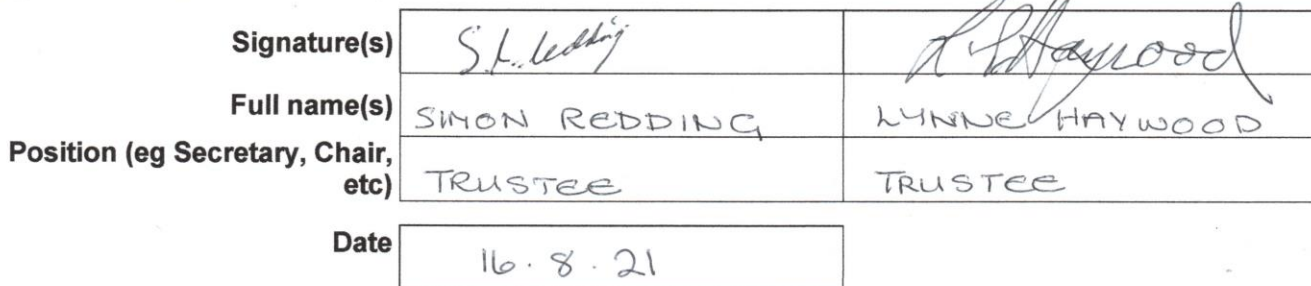 Signature(s) S. L. Redding L Haywood
Full name(s) SIMON REDDING LYNNE HAYWOOD
Position (eg Secretary, Chair,
etc) TRUSTEE TRUSTEE
Date 16.8.21